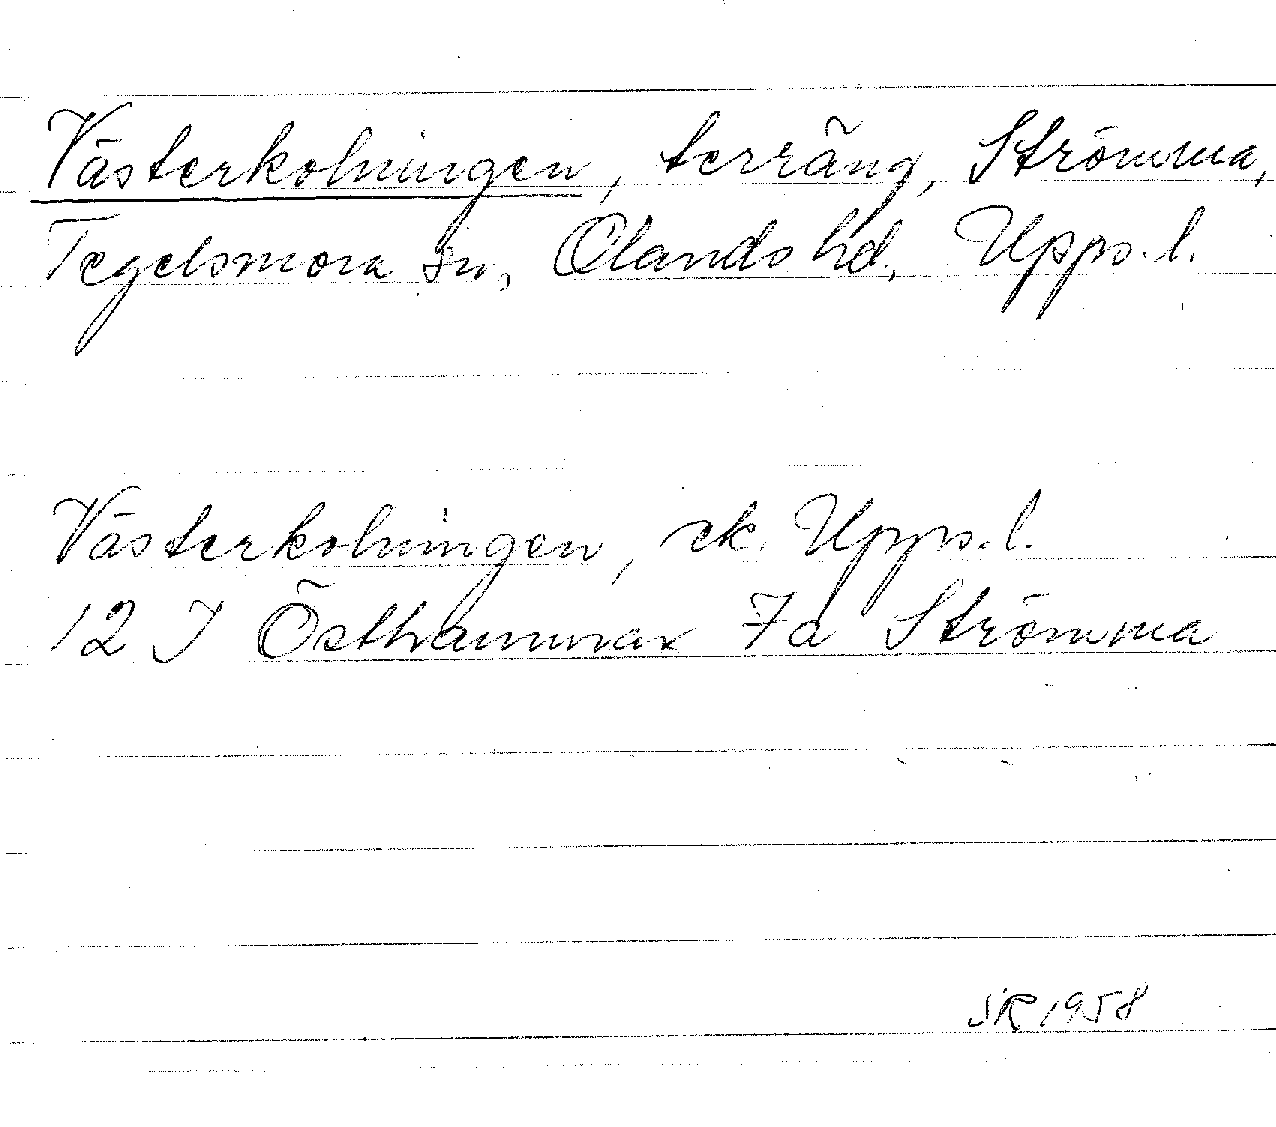 Västerkolningen, terräng, Strömma,
Tegelsmora sn, Olands hd, Upps. l.
Västerkolningen, ek. Upps. l.
12 I Östhammar 7a Strömma
SR 1958